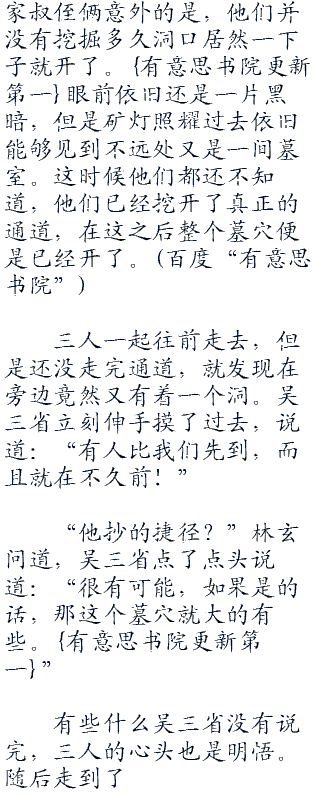 家叔侄俩意外的是，他们并
没有挖掘多久洞口居然一下
子就开了。{有意思书院更新
第一}眼前依旧还是一片黑
暗，但是矿灯照耀过去依旧
能够见到不远处又是一间墓
室。这时候他们都还不知
道，他们已经挖开了真正的
通道，在这之后整个墓穴便
是已经开了。(百度“有意思
书院”)
三人一起往前走去，但
是还没走完通道，就发现在
旁边竟然又有着一个洞。吴
三省立刻伸手摸了过去，说
道：“有人比我们先到，而
且就在不久前！”
“他抄的捷径？”林玄
问道，吴三省点了点头说
道：“很有可能，如果是的
话，那这个墓穴就大的有
些。{有意思书院更新第
一}”
有些什么吴三省没有说
完，三人的心头也是明悟。
随后走到了